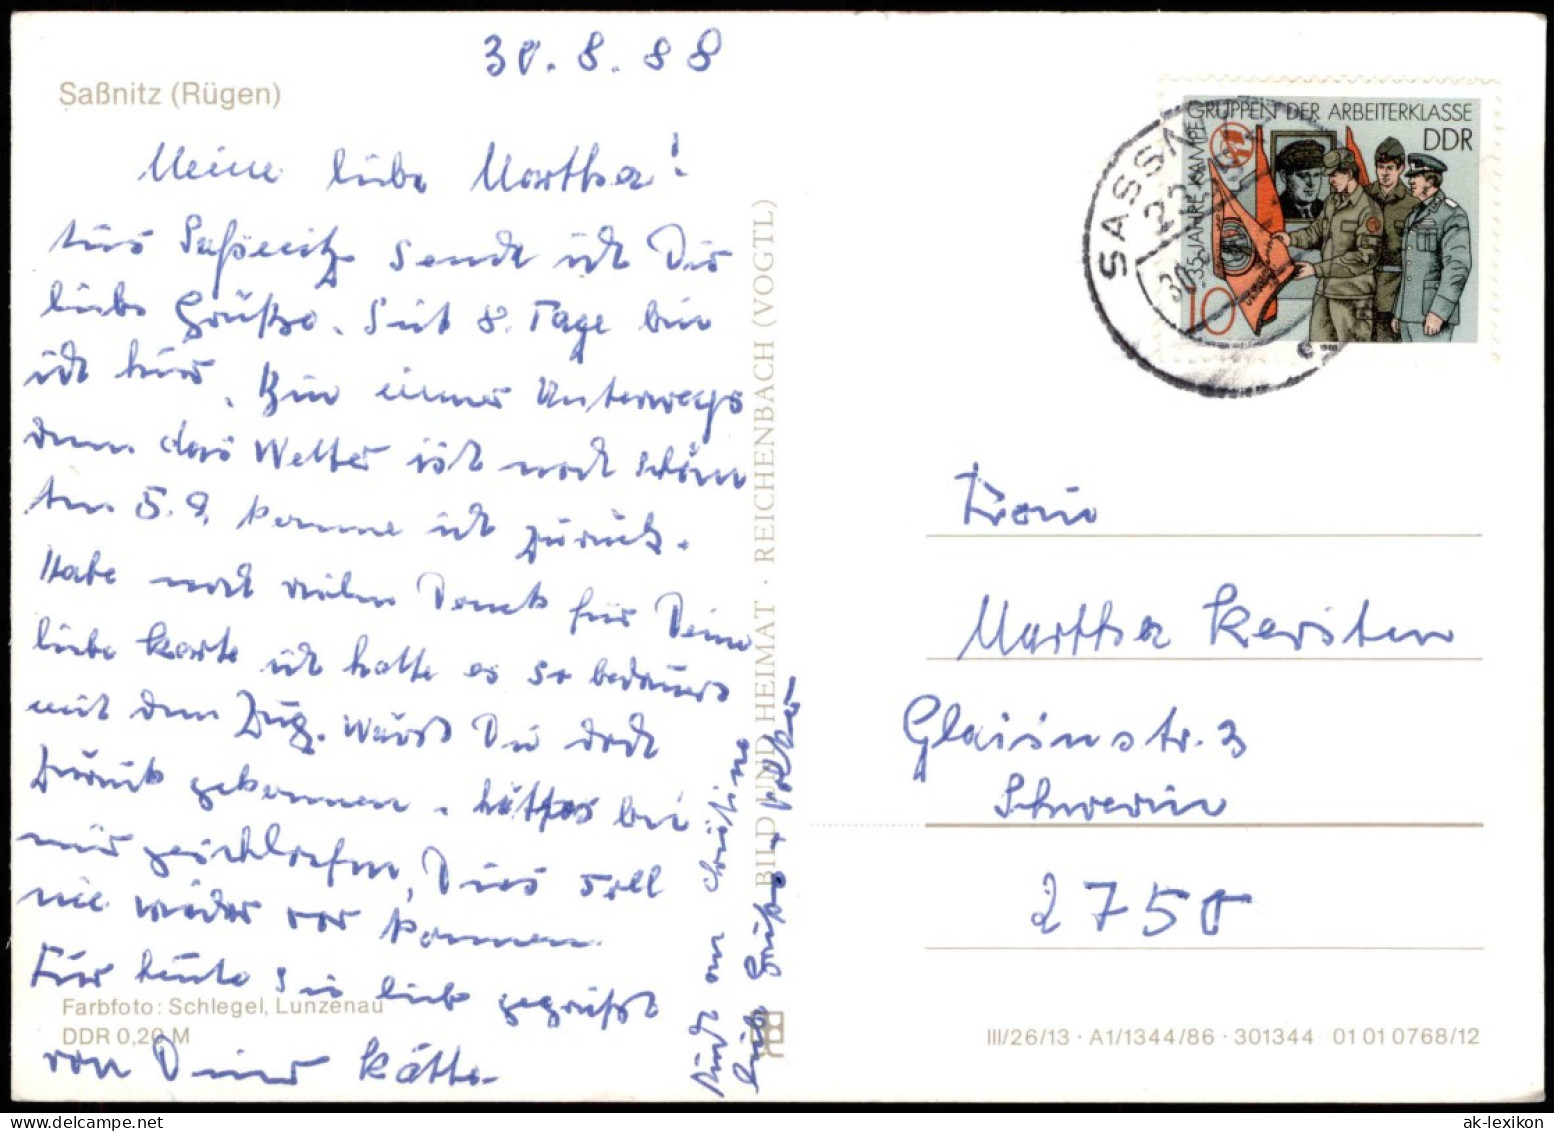 30.8.88
Saßnitz (Rügen)
Meine liebe Martha!
Aus Saßnitz sende ich Dir
liebe Grüße. Seit 8. Tage bin
ich hier. Bin immer Unterwegs
denn das Wetter ist noch schön
Am 5.9. komme ich zurück.
Habe noch vielen Dank für Deine
liebe Karte ich hatte es so bedauert
mit dem Zug. Wärst Du doch
zurück gekommen. hättest bei
mir geschlafen, Dies soll
nie wieder vor kommen.
Für heute sei lieb gegrüßt
von Deiner Käthe.
Auch an Christine
liebe Grüße + Volker
BILD UND HEIMAT · REICHENBACH (VOGTL)
Farbfoto: Schlegel, Lunzenau
DDR 0,20 M
35 JAHRE KAMPFGRUPPEN DER ARBEITERKLASSE
DDR
10
SASSN
30.
22
e
Frau
Marthha Kersten
Glaisinstr. 3
Schwerin
2750
III/26/13 · A1/1344/86 · 301344 01 01 0768/12
ak-lexikon.com